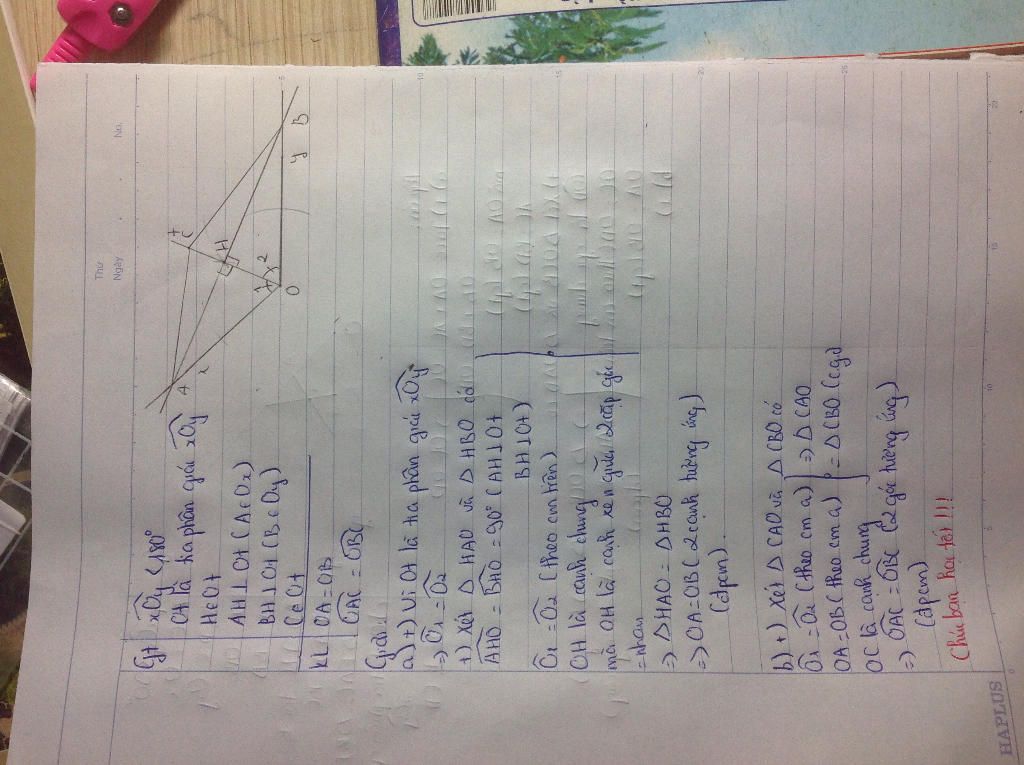 Thứ
Ngày
No.
Gt
x̂Oy < 180°
Ot là tia phân giác x̂Oy
H ∈ Ot
AH ⊥ Ot (A ∈ Ox)
BH ⊥ Ot (B ∈ Oy)
C ∈ Ot
KL
OA = OB
ÔAC = ÔBC
A
x
t
C
H
1
2
O
y
B
Giải:
a) +) Vì Ot là tia phân giác x̂Oy
=> Ô1 = Ô2
+) Xét Δ HAO và Δ HBO có
ÂHO = B̂HO = 90° (AH ⊥ Ot
BH ⊥ Ot)
Ô1 = Ô2 (theo cm trên)
OH là cạnh chung
mà OH là cạnh xen giữa 2 cặp góc
= nhau
=> Δ HAO = Δ HBO
=> OA = OB (2 cạnh tương ứng)
(đpcm).
b) +) Xét Δ CAO và Δ CBO có
Ô1 = Ô2 (theo cm a) => Δ CAO
OA = OB (theo cm a) = Δ CBO (c.g.c)
OC là cạnh chung
=> ÔAC = ÔBC (2 góc tương ứng)
(đpcm)
Chúc bạn học tốt !!!
HAPLUS
0
5
10
15
20
5
10
15
20
25